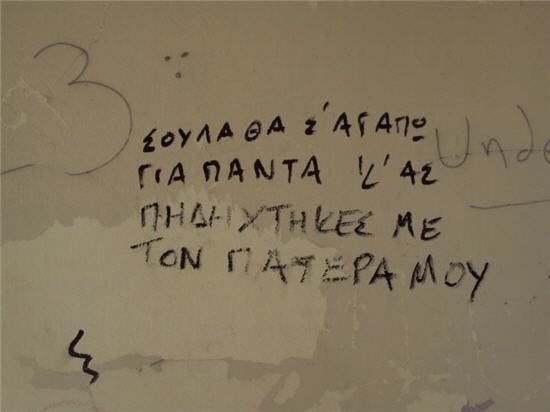 ΣΟΥΛΑ ΘΑ Σ'ΑΓΑΠΩ
ΓΙΑ ΠΑΝΤΑ Κ'ΑΣ
ΠΗΔΗΧΤΗΚΕΣ ΜΕ
ΤΟΝ ΠΑΤΕΡΑ ΜΟΥ